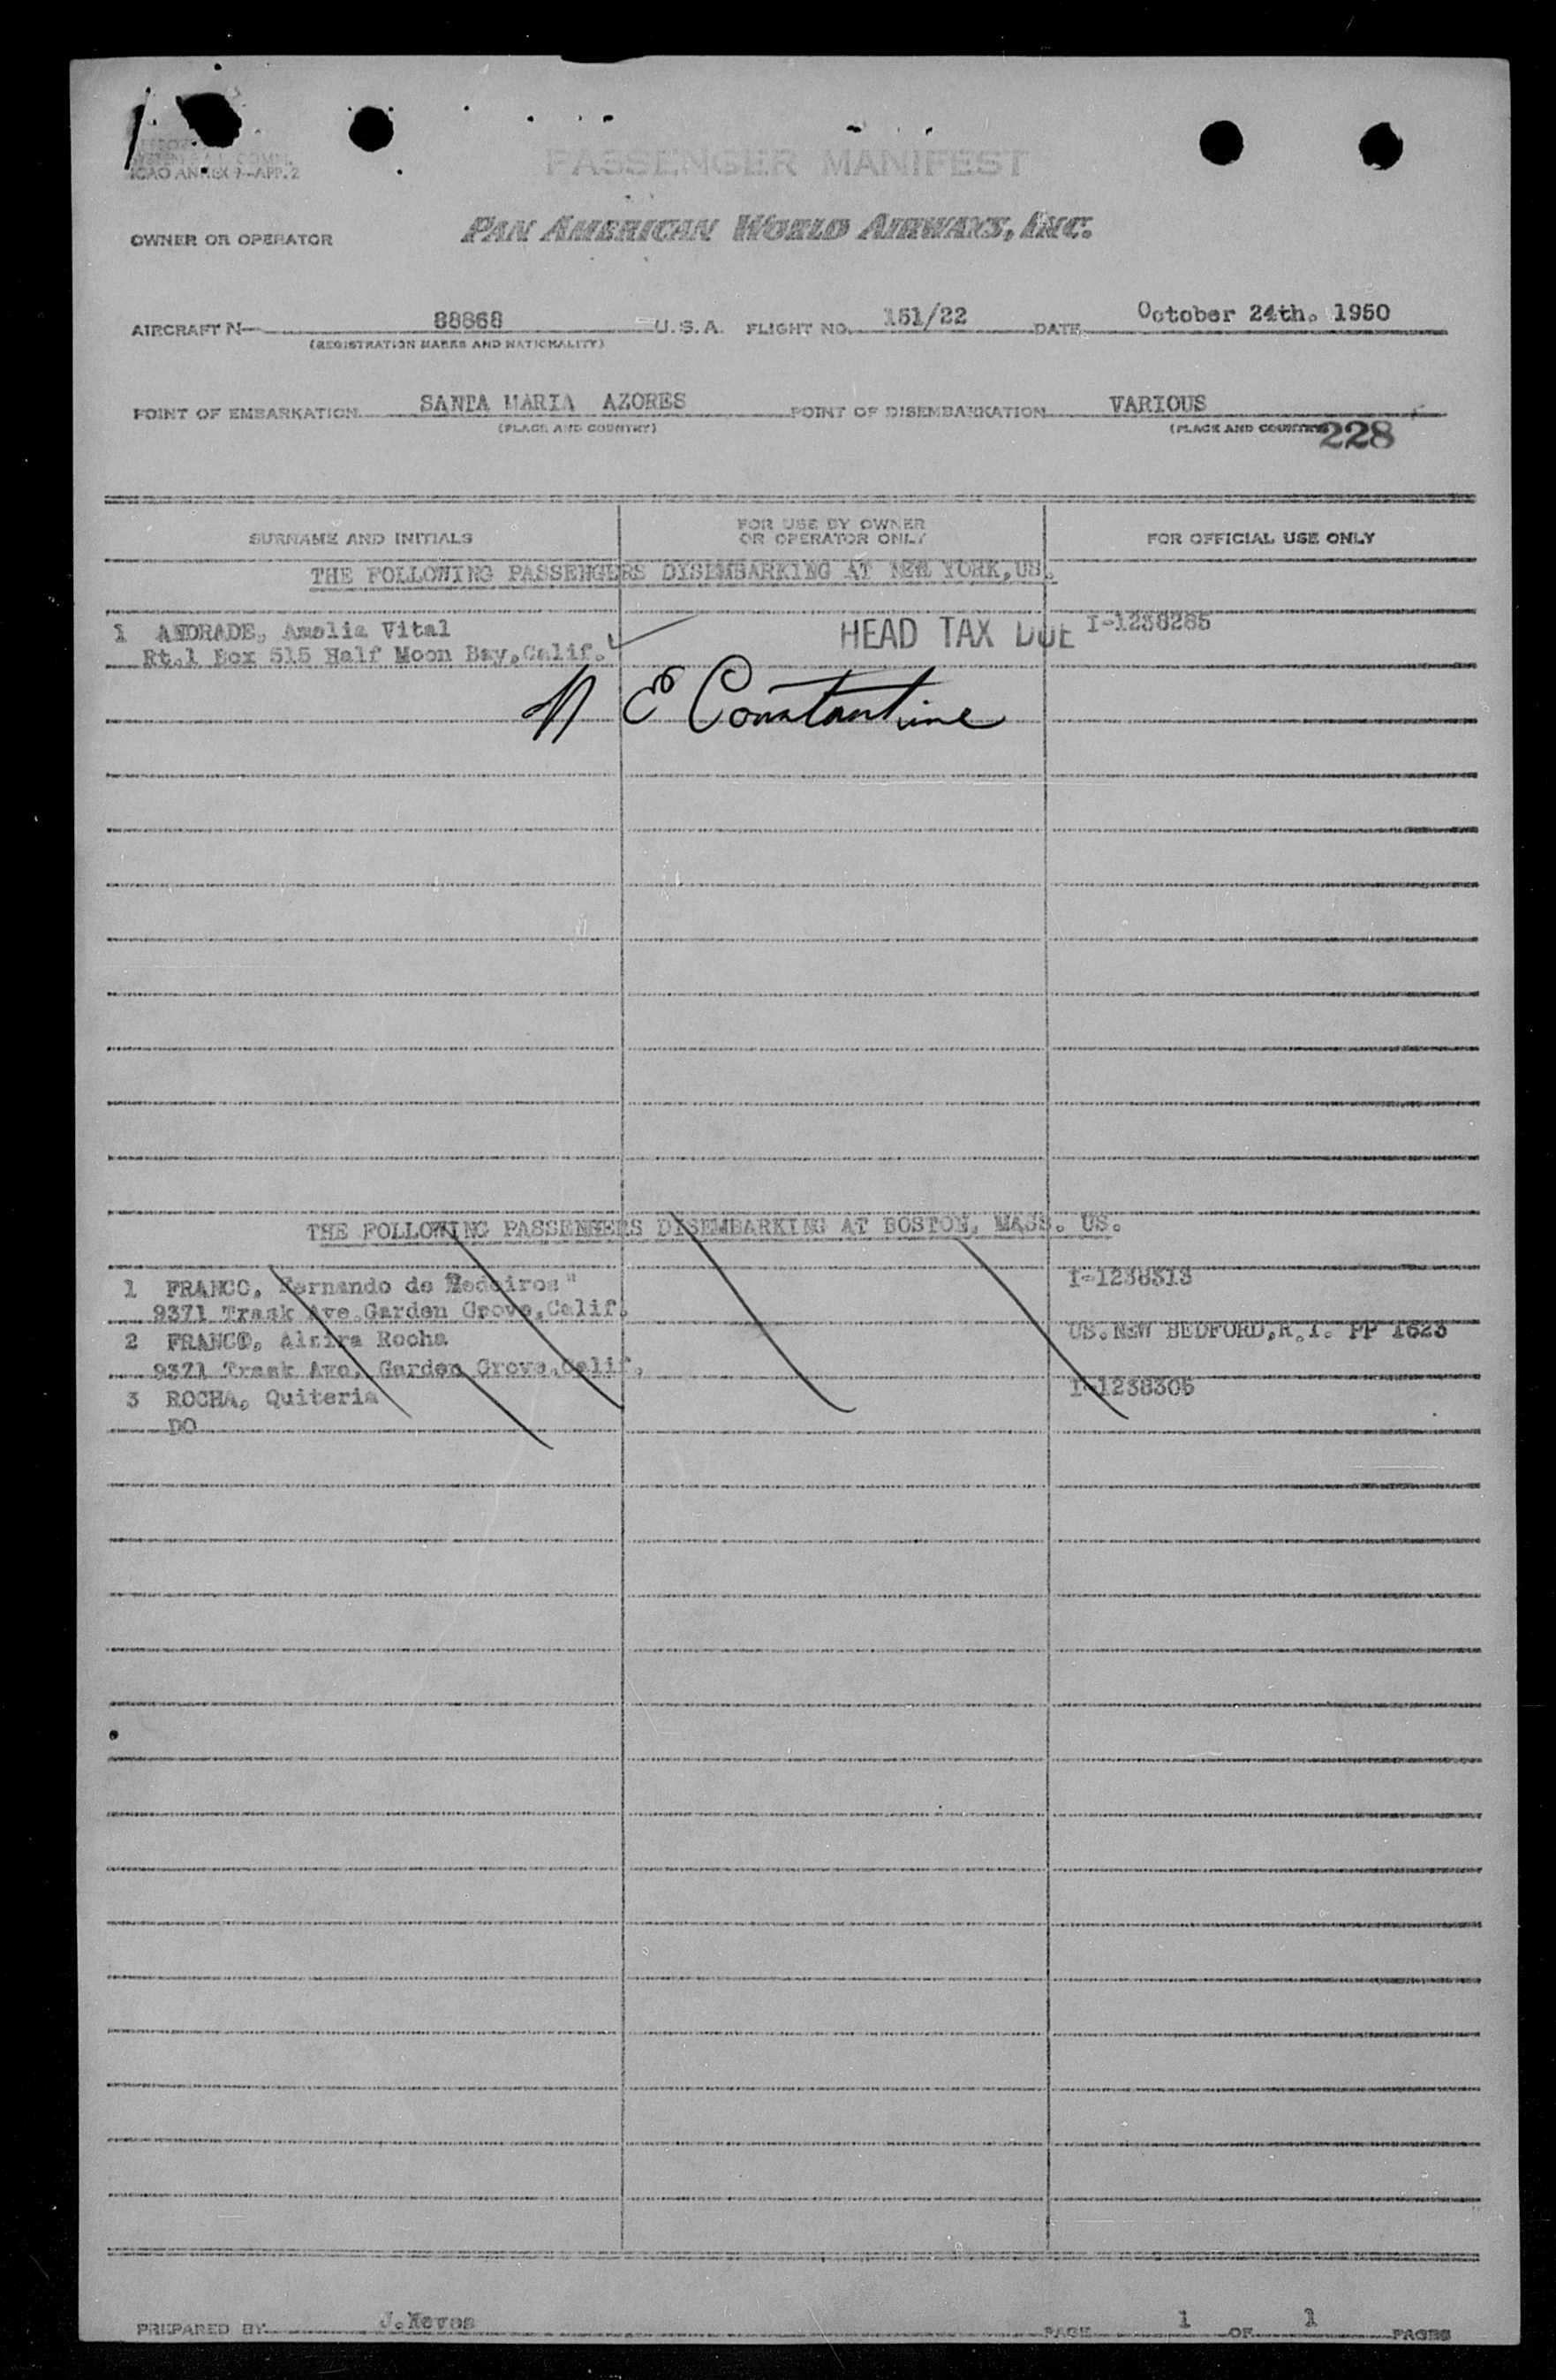 PASSENGER MANIFEST
ICAO ANNEX 9-APP. 2
OWNER OR OPERATOR PAN AMERICAN WORLD AIRWAYS, INC.
AIRCRAFT N 88868 U.S.A. FLIGHT NO. 151/22 DATE October 24th. 1950
(REGISTRATION MARKS AND NATIONALITY)
POINT OF EMBARKATION SANTA MARIA AZORES POINT OF DISEMBARKATION VARIOUS
(PLACE AND COUNTRY) (PLACE AND COUNTRY) 228
SURNAME AND INITIALS FOR USE BY OWNER OR OPERATOR ONLY FOR OFFICIAL USE ONLY
THE FOLLOWING PASSENGERS DISEMBARKING AT NEW YORK, US.
1 ANDRADE, Amelia Vital HEAD TAX DUE I-1238285
Rt.1 Box 515 Half Moon Bay, Calif.
E Constantine
THE FOLLOWING PASSENGERS DISEMBARKING AT BOSTON, MASS. US.
1 FRANCO, Fernando de Medeiros" I-1238313
9371 Trask Ave. Garden Grove, Calif.
2 FRANCO, Alzira Rocha US. NEW BEDFORD, R.I. PP 1623
9371 Trask Ave. Garden Grove, Calif.
3 ROCHA, Quiteria I-1238305
DO
PREPARED BY J. Neves PAGE 1 OF 1 PAGES